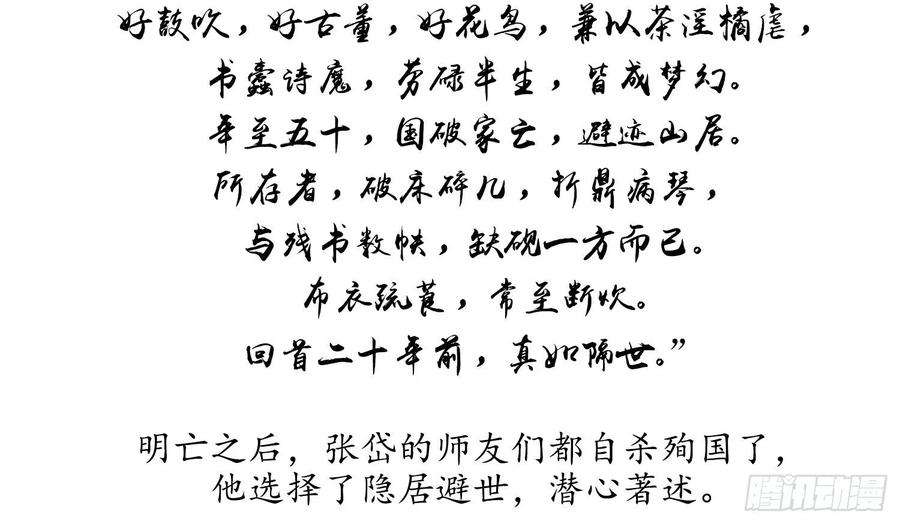 好鼓吹，好古董，好花鸟，兼以茶淫橘虐，
书蠹诗魔，劳碌半生，皆成梦幻。
年至五十，国破家亡，避迹山居。
所存者，破床碎几，折鼎病琴，
与残书数帙，缺砚一方而已。
布衣疏莨，常至断炊。
回首二十年前，真如隔世。”
明亡之后，张岱的师友们都自杀殉国了，
他选择了隐居避世，潜心著述。
腾讯动漫